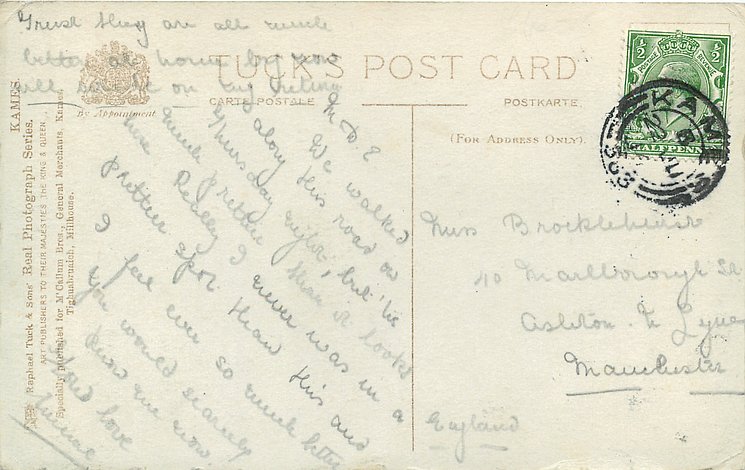 Trust they are all much
better at home by now
will write on my
TUCK'S POST CARD
CARTE POSTALE
POSTKARTE.
By Appointment
(FOR ADDRESS ONLY).
KAMES.
Raphael Tuck & Sons' Real Photograph Series.
ART PUBLISHERS TO THEIR MAJESTIES THE KING & QUEEN.
Specially published for M'Callum Bros., General Merchants, Kames,
Tighnabruaich, Millhouse.
We walked
along this road on
Thursday night, but its
much prettier than it looks
here Really I never was in a
prettier spot than this and
I feel ever so much better
you would scarcely
know me now
love
Miss Brocklehurst
40 Marlborough St
Ashton-U-Lyne
Manchester
England
1/2
1/2
POSTAGE
HALFPENNY
KAMES